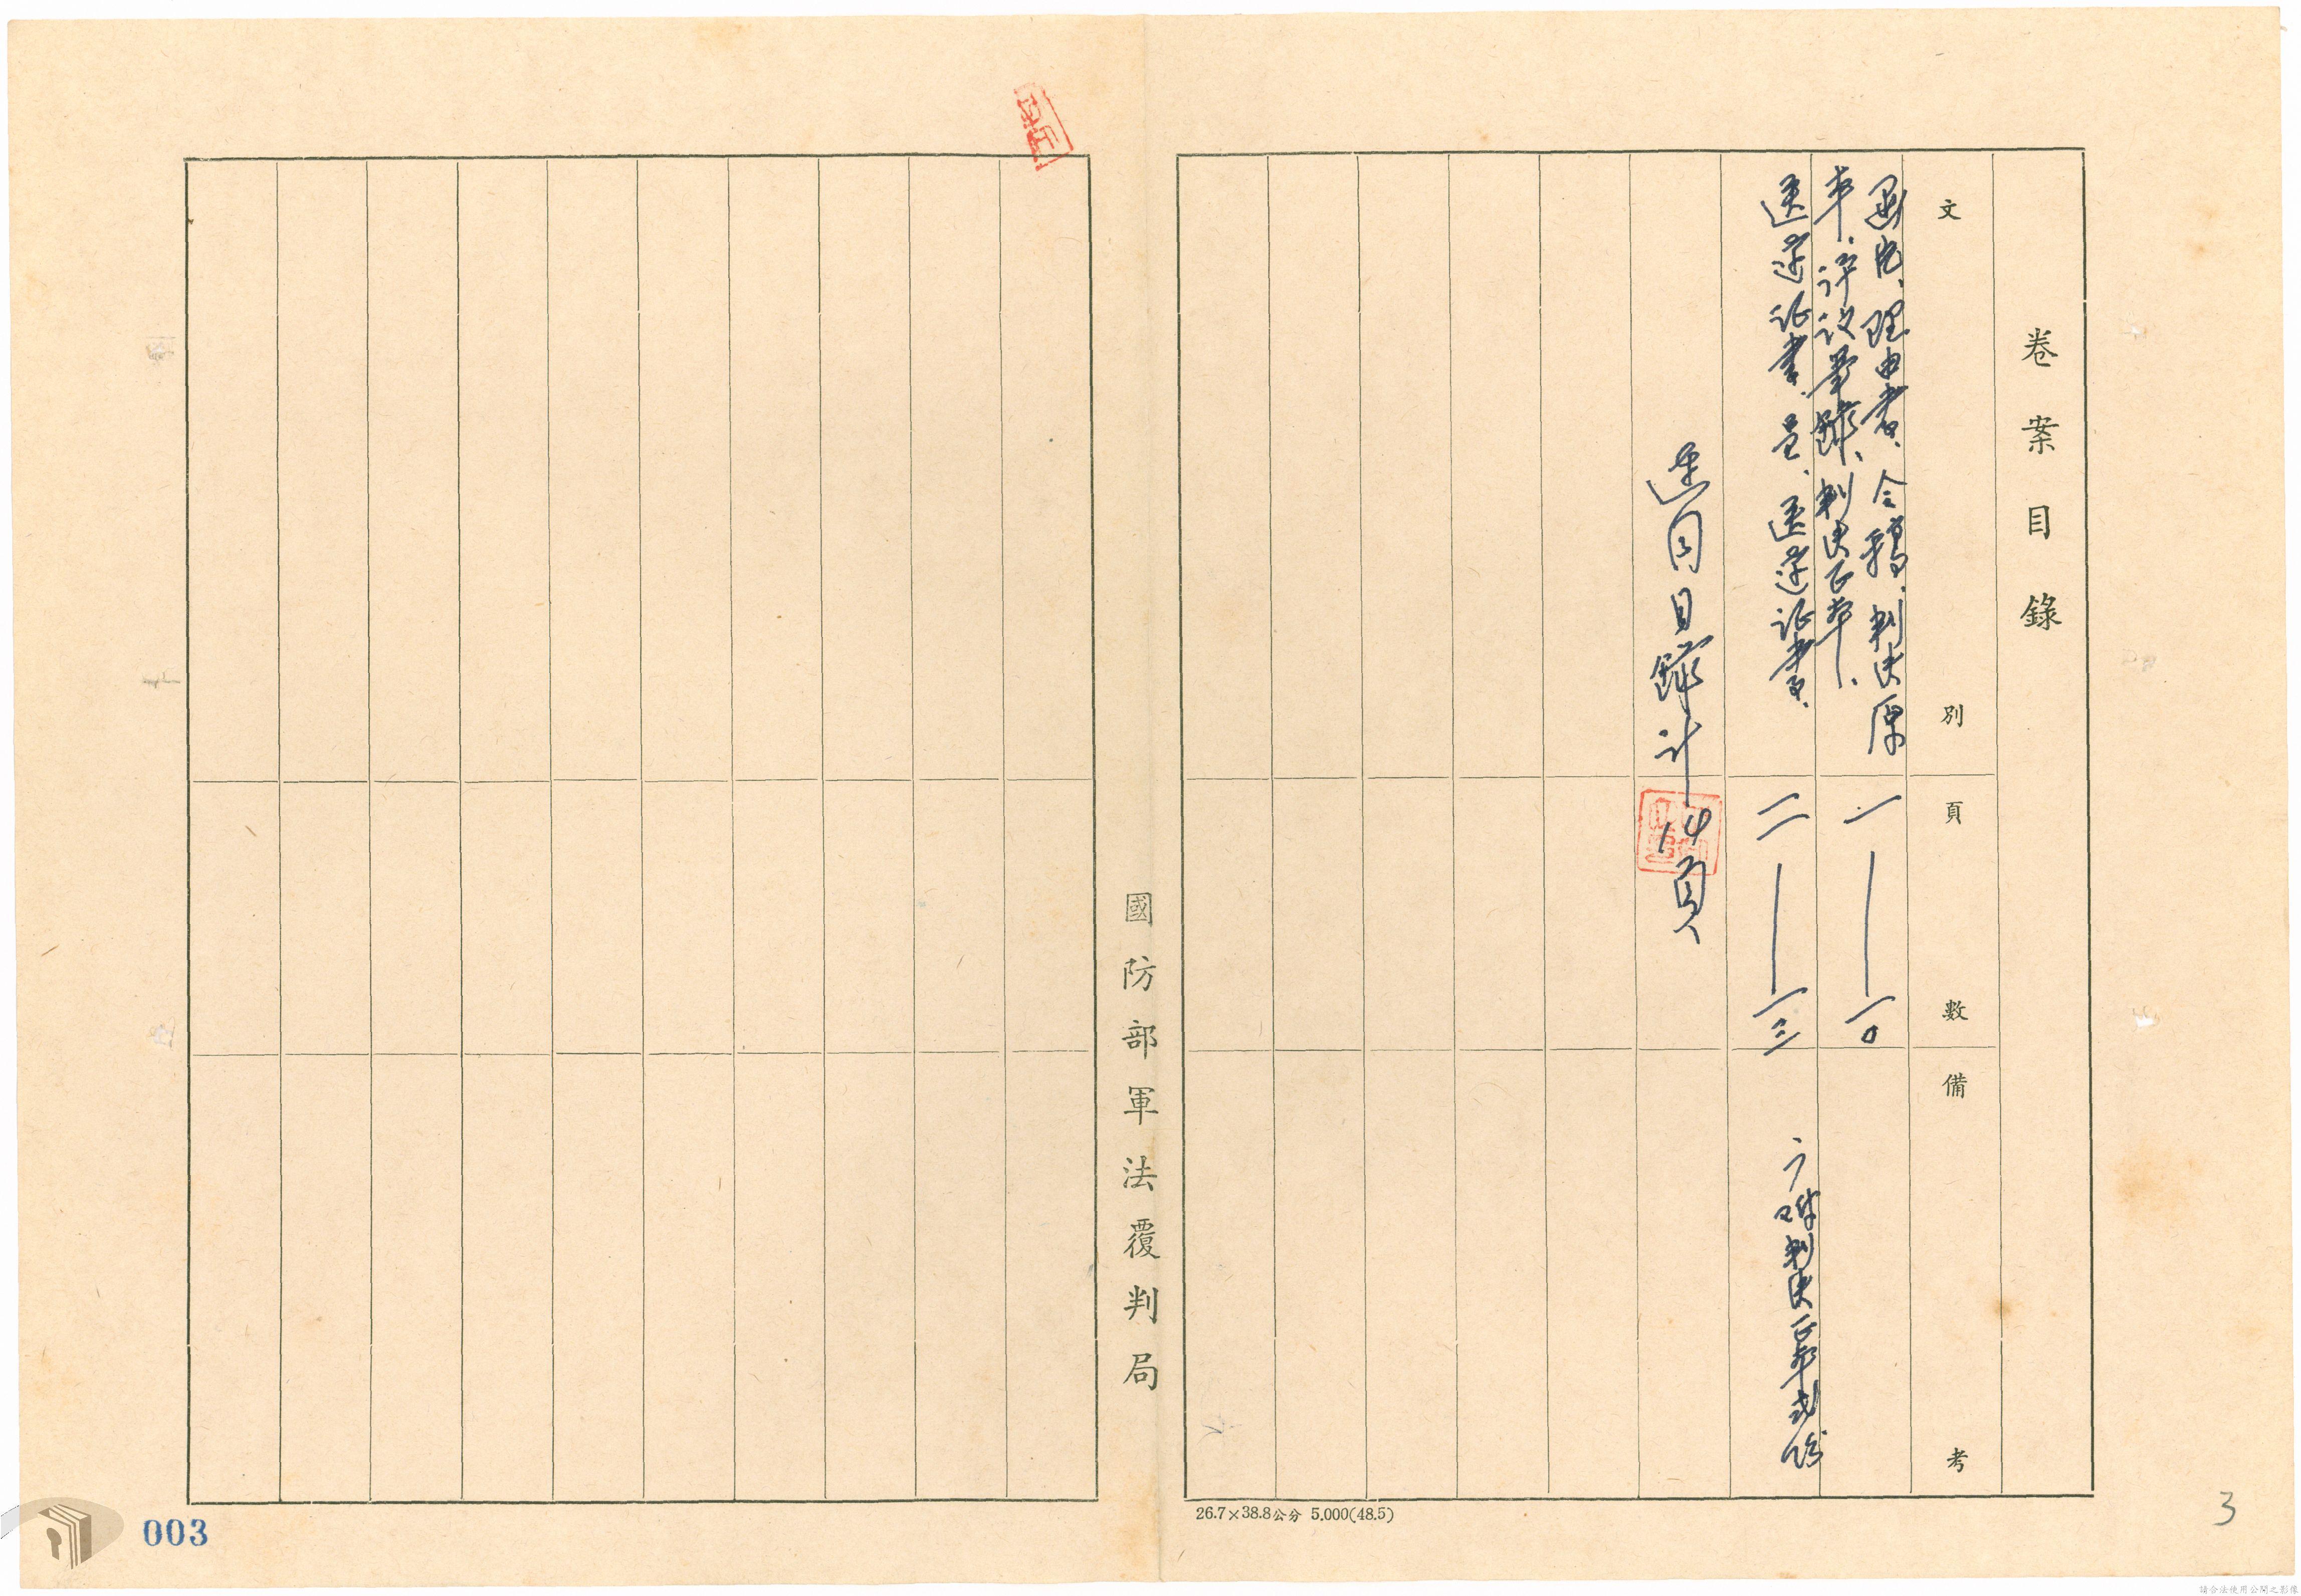 卷案目錄
文別
頁數
備考
函片、理由書、令稿、判決原
本、評议筆錄、判決正本、
一——一0
送達证書、呈、送達证書、
一一——一三
判決正本弍份
連同目錄計14頁
國防部軍法覆判局
26.7×38.8公分 5.000(48.5)
003
3
請合法使用公開之影像